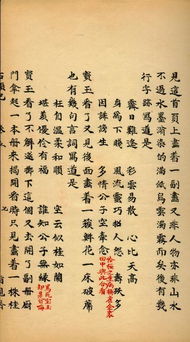 見這首頁上畫着一副畫又非人物亦非山水
不過水墨滃染的滿紙烏雲濁霧而矣後有幾
行字跡寫道是
霽日難逢 彩雲易散 心比天高
身為下賤 風流靈巧招人怨 壽夭多
因誹謗生 多情公子空牽念
恰極之至病補雀金裘
回中與此合看
寶玉看了又見後面畫着一簇鮮花一床破席
也有幾句言詞寫道是
枉自溫柔和順 空云似桂如蘭
堪羨優伶有福 誰知公子無緣
罵死寶玉
卻是自悔
寶玉看了不解遂擲下這個又去開了副冊厨
門拿起一本冊來揭開看時只見畫着一株桂
石頭記